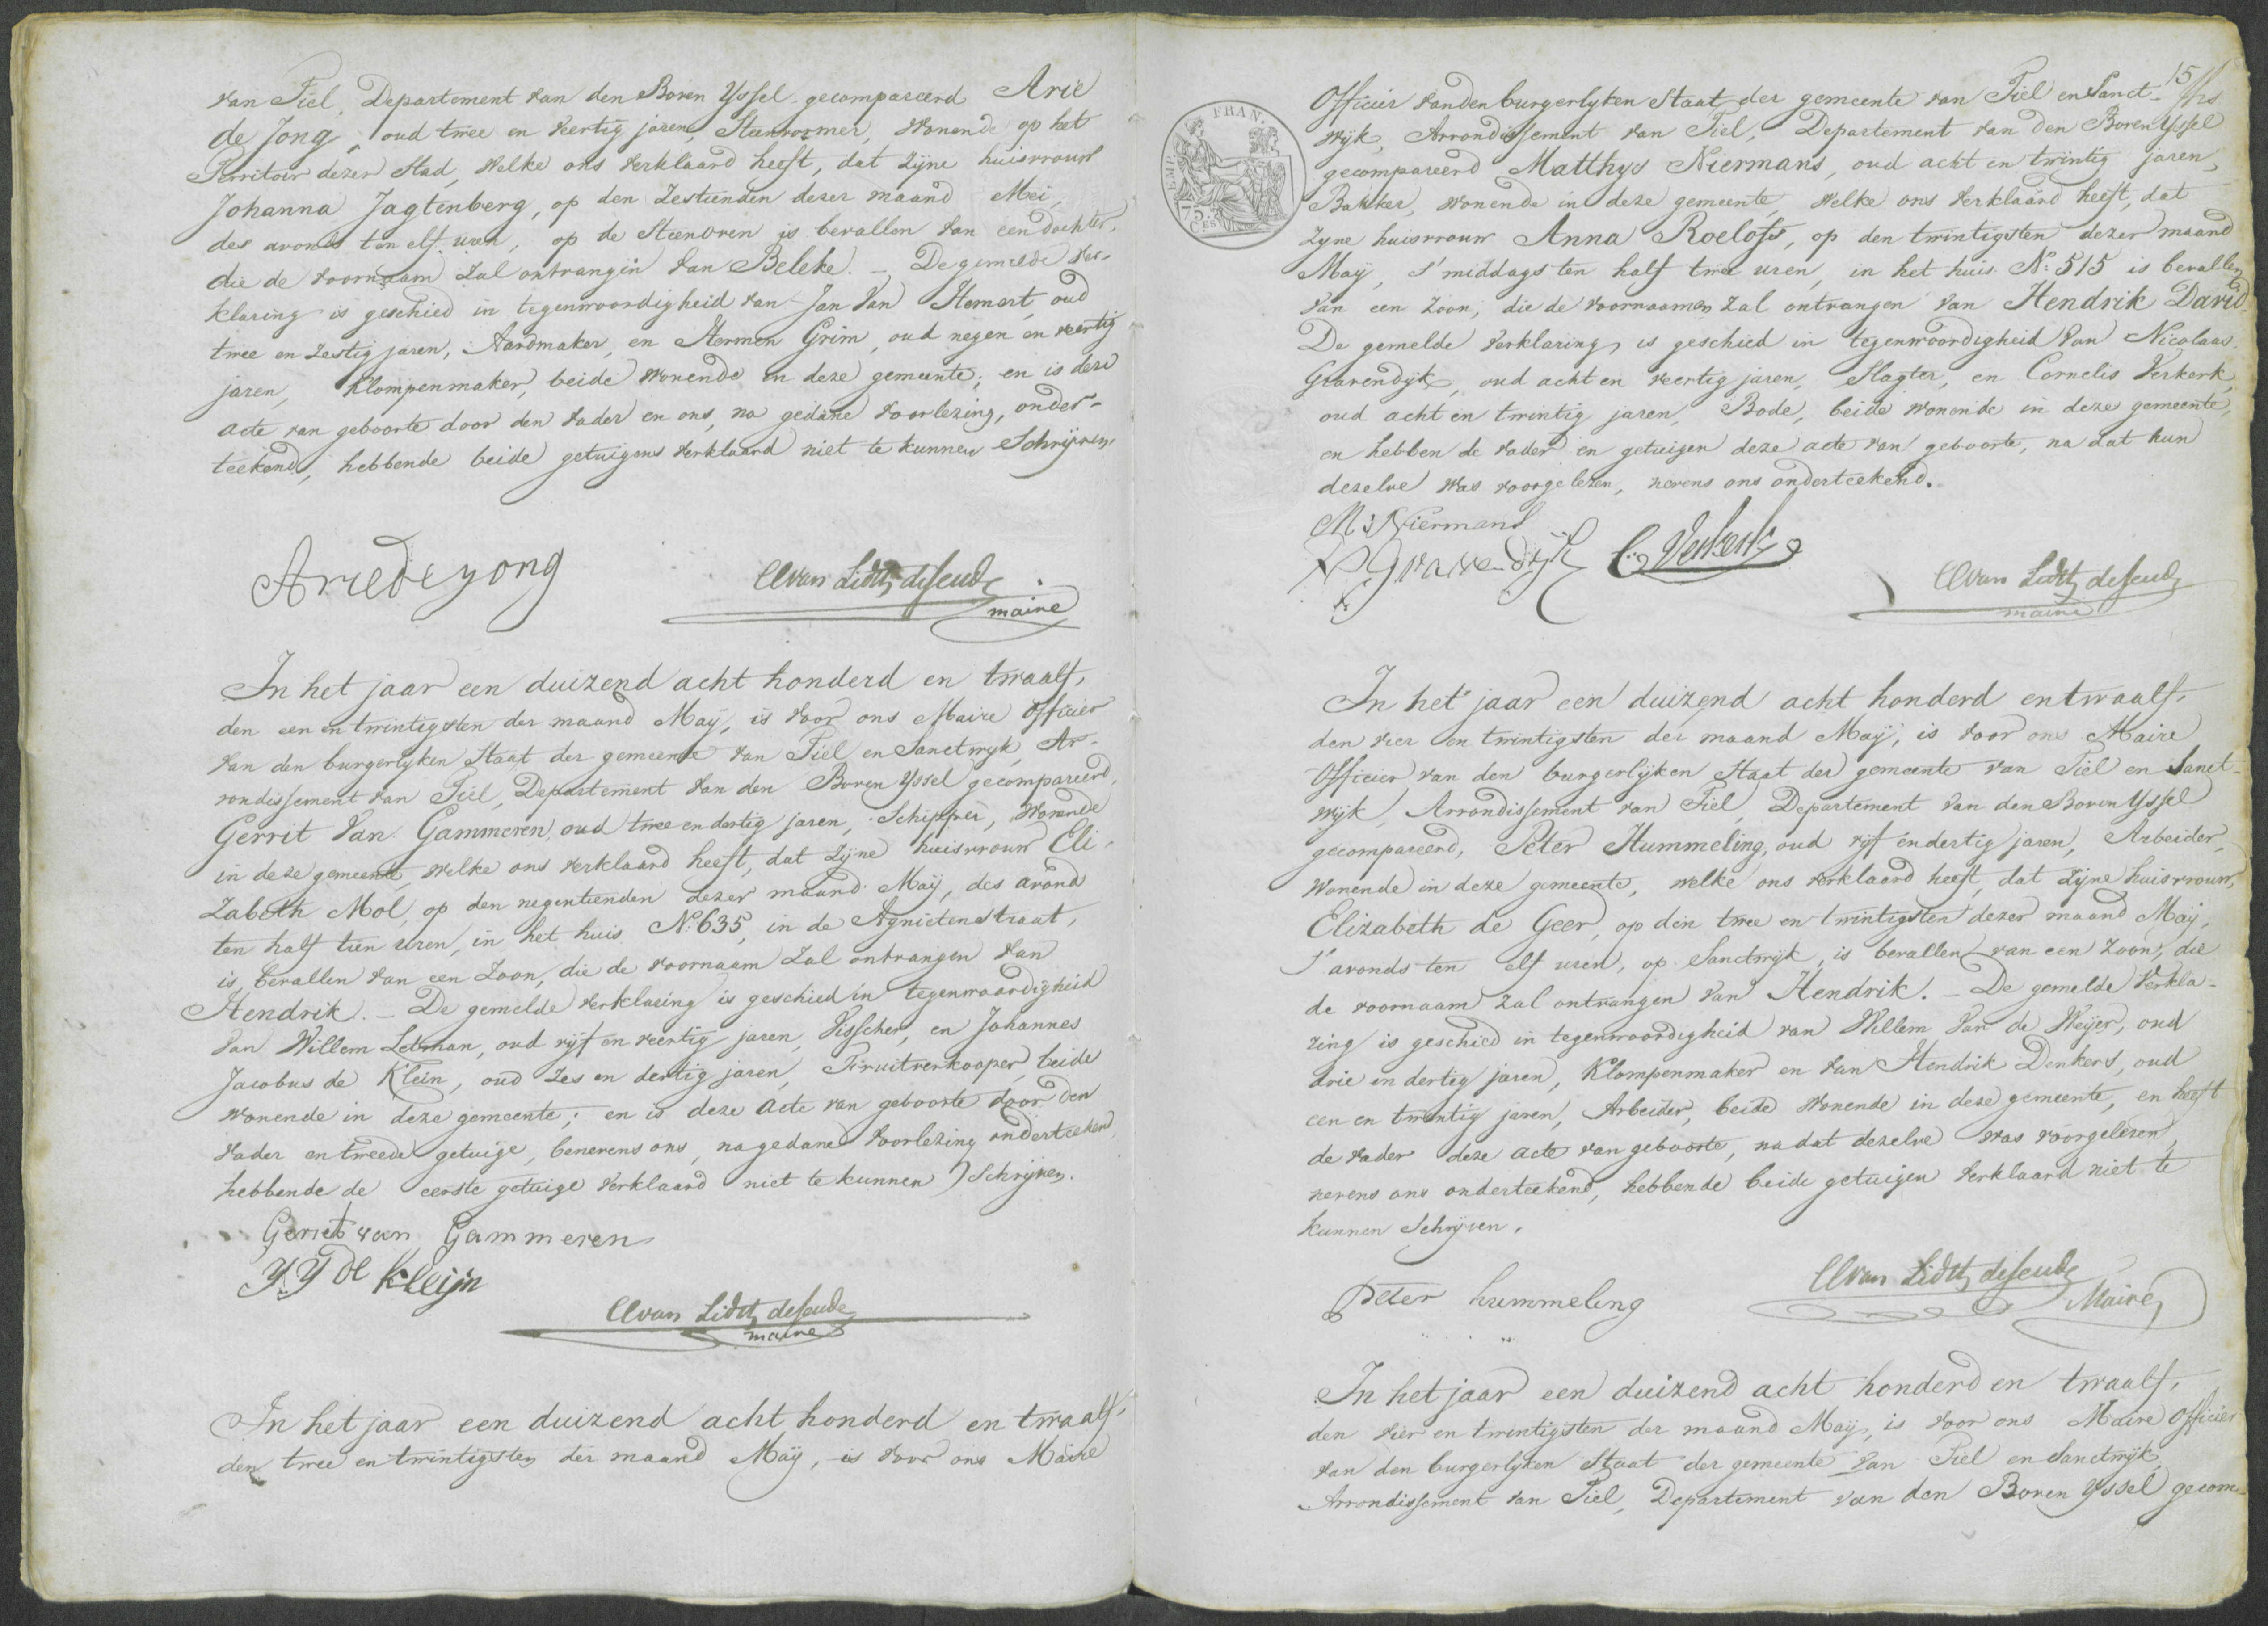 van Tiel, Departement van den Boven Yssel gecompareerd Arie
de Jong, oud twee en veertig jaren, Steenvormer, wonende op het
Territoir dezer Stad, welke ons verklaard heeft, dat zijne huisvrouw
Johanna Jagtenberg, op den zestienden dezer maand Mei,
des avonds ten elf uren, op de Steenoven is bevallen van een dochter,
die de voornaam zal ontvangen van Beleke. _ De gemelde ver-
klaring is geschied in tegenwoordigheid van Jan van Hemert, oud
twee en zestig jaren, Aardmaker, en Hermen Grim, oud negen en veertig
jaren, Klompenmaker, beide wonende in deze gemeente; en is deze
acte van geboorte door den vader en ons, na gedane voorlezing, onder-
teekend, hebbende beide getuigens verklaard niet te kunnen Schrijven.
Arie de yong
van Lidth de Jeude
maire
In het jaar een duizend acht honderd en twaalf,
den een en twintigsten der maand Maÿ, is voor ons Maire Officier
van den burgerlyken Staat der gemeente van Tiel en Sanctwyk, Ar-
rondissement van Tiel, Departement van den Boven Yssel gecompareerd,
Gerrit van Gammeren, oud twee en dertig jaren, Schipper, wonende
in deze gemeente, welke ons verklaard heeft, dat zijne huisvrouw Eli-
zabeth Mol, op den negentienden dezer maand Maÿ, des avond
ten half tien uren, in het huis No. 635, in de Agnietenstraat,
is bevallen van een Zoon, die de voornaam zal ontvangen van
Hendrik. _ De gemelde verklaring is geschied in tegenwoordigheid
van Willem Letman, oud vijf en veertig jaren, Visscher, en Johannes
Jacobus de Klein, oud zes en dertig jaren, Fruitverkooper, beide
wonende in deze gemeente; en is deze acte van geboorte door den
vader en tweede getuige, benevens ons, na gedane voorlezing onderteekend,
hebbende de eerste getuige verklaard niet te kunnen Schrijven.
Gerriet van Gammeren
J. J de Kleijn
van Lidth de Jeude
maire
In het jaar een duizend acht honderd en twaalf,
den twee en twintigsten der maand Maÿ, is voor ons Maire
15
FRAN.
EMP.
75.
CES
Officier van den burgerlyken Staat der gemeente van Tiel en Sanct-
wijk, Arrondissement van Tiel, Departement van den Boven Yssel
gecompareerd Matthys Niermans, oud acht en twintig jaren,
Bakker, wonende in deze gemeente, welke ons verklaard heeft, dat
zyne huisvrouw Anna Roelofs, op den twintigsten dezer maand
Maÿ, s'middags ten half twee uren, in het huis No. 515 is bevallen
van een zoon, die de voornaamen zal ontvangen van Hendrik David.
De gemelde verklaring is geschied in tegenwoordigheid van Nicolaas
Gravendijk, oud acht en veertig jaren, Slagter, en Cornelis Verkerk,
oud acht en twintig jaren, Bode, beide wonende in deze gemeente,
en hebben de vader en getuigen deze acte van geboorte, na dat hun
dezelve was voorgelezen, nevens ons onderteekend.
M: Niermans
N. Gravendijk C. Verkerk
van Lidth de Jeude
maire
In het jaar een duizend acht honderd en twaalf,
den vier en twintigsten der maand Maÿ, is voor ons Maire
Officier van den burgerlijken Staat der gemeente van Tiel en Sanct-
wijk, Arrondissement van Tiel, Departement van den Boven Yssel
gecompareerd, Peter Hummeling, oud vijf en dertig jaren, Arbeider,
wonende in deze gemeente, welke ons verklaard heeft, dat zijne huisvrouw,
Elizabeth de Geer, op den twee en twintigsten dezer maand Maÿ,
s'avonds ten elf uren, op Sanctwijk, is bevallen van een zoon, die
de voornaam zal ontvangen van Hendrik. _ De gemelde verkla-
ring is geschied in tegenwoordigheid van Willem van de Weijer, oud
drie en dertig jaren, Klompenmaker en van Hendrik Denkers, oud
een en twintig jaren, Arbeider, beide wonende in deze gemeente, en heeft
de vader deze acte van geboorte, na dat dezelve was voorgelezen,
nevens ons onderteekend, hebbende beide getuigen verklaard niet te
kunnen Schrijven.
Peter hummeling
van Lidth de Jeude
Maire
In het jaar een duizend acht honderd en twaalf,
den vier en twintigsten der maand Maÿ, is voor ons Maire Officier
van den burgerlyken Staat der gemeente van Tiel en Sanctwijk,
Arrondissement van Tiel, Departement van den Boven Yssel gecom-